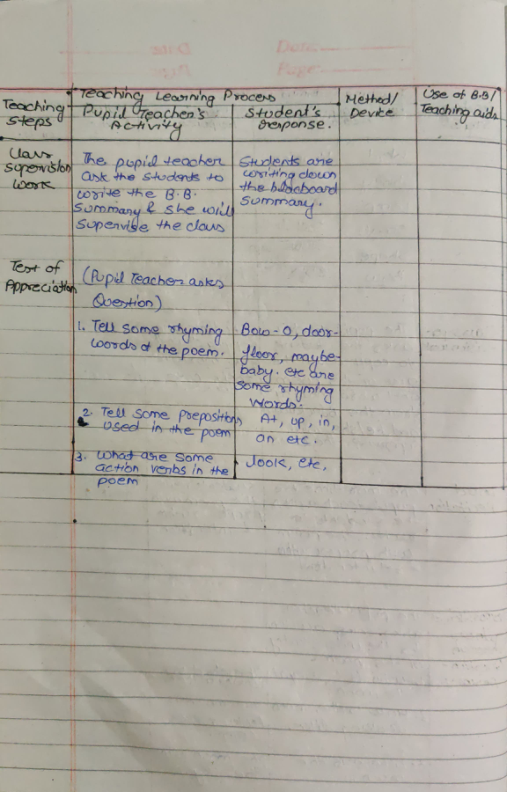 Teaching Steps
Teaching Learning Process
Pupil Teacher's Activity
Student's Response.
Method/ Device
Use of B.B/ Teaching aids
Class
Supervision
Work
The pupil teacher
ask the students to
write the B.B.
Summary & She will
Supervise the class
Students are
writing down
the blackboard
Summary.
Test of
Appreciation
(Pupil Teacher asks
Question)
1. Tell some rhyming
words of the poem.
Bow-O, door-
floor, maybe-
baby. etc are
some rhyming
words.
2. Tell some prepositions
used in the poem
At, up, in,
on etc.
3. What are some
action verbs in the
poem
look, etc,